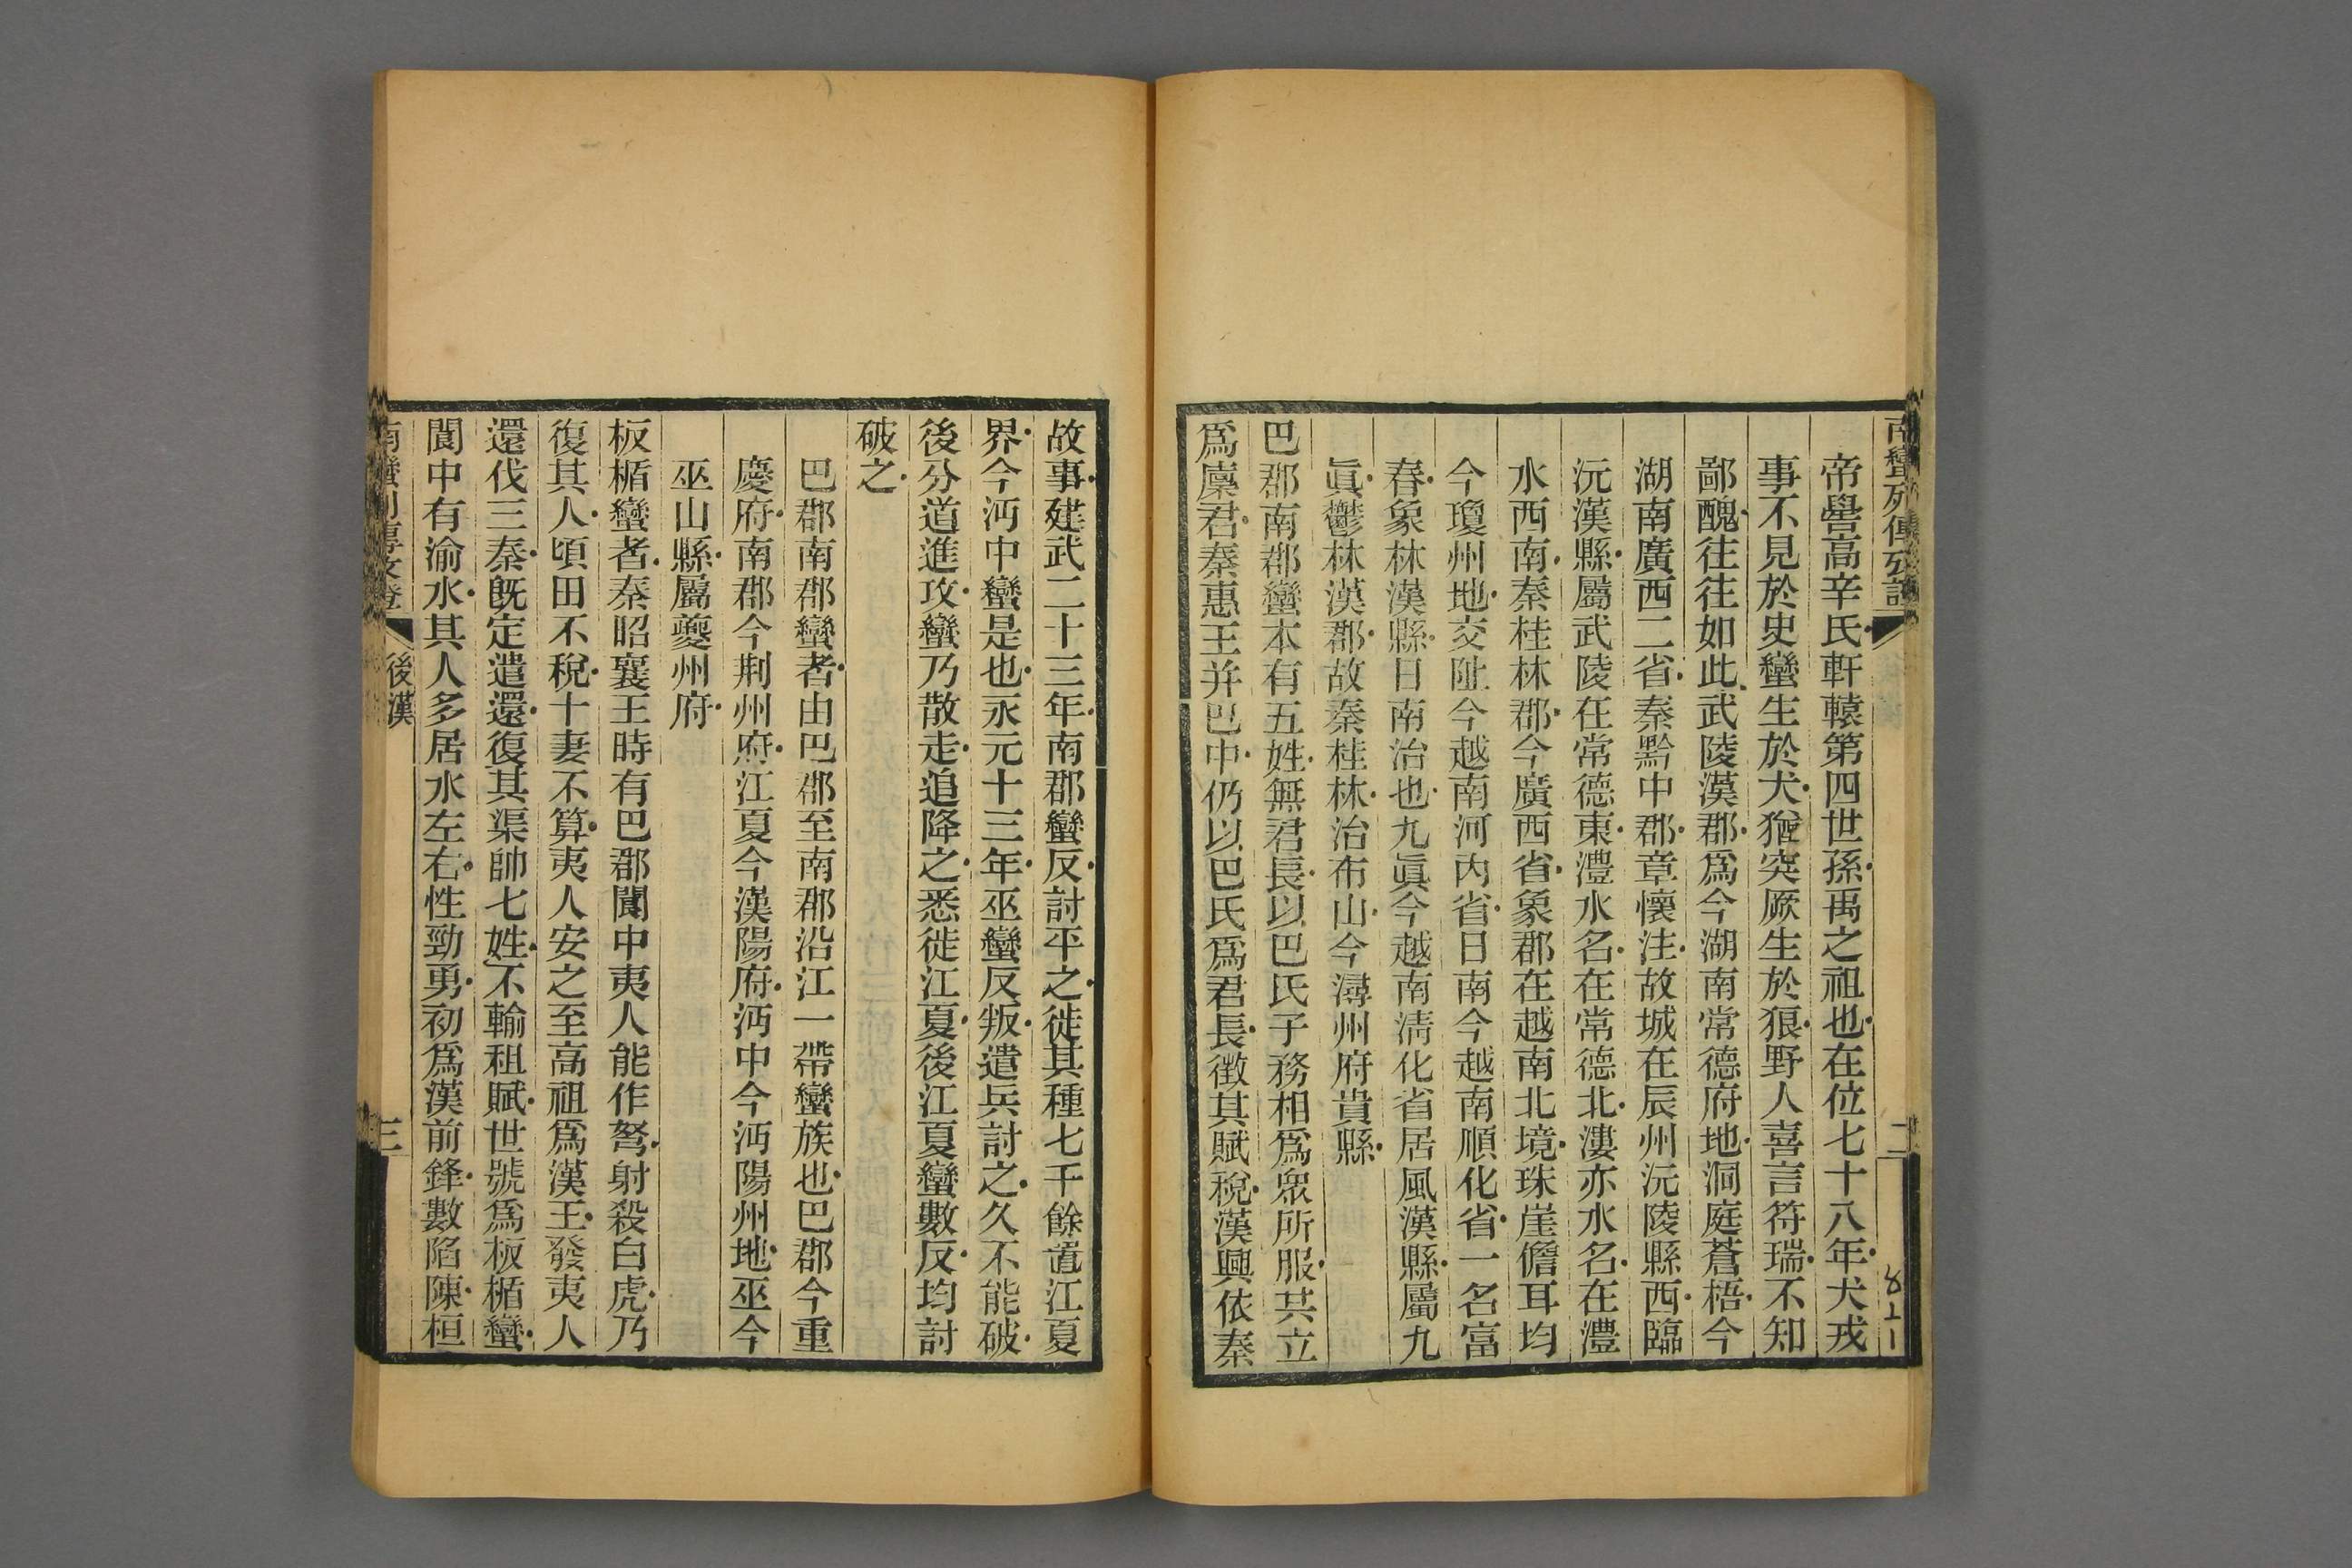 南蠻列傳攷證
二
帝嚳高辛氏軒轅第四世孫禹之祖也在位七十八年犬戎
事不見於史蠻生於犬猶突厥生於狼野人喜言符瑞不知
鄙醜往往如此武陵漢郡爲今湖南常德府地洞庭蒼梧今
湖南廣西二省秦黔中郡章懷注故城在辰州沅陵縣西臨
沅漢縣屬武陵在常德東澧水名在常德北漊亦水名在澧
水西南秦桂林郡今廣西省象郡在越南北境珠崖儋耳均
今瓊州地交阯今越南河內省日南今越南順化省一名富
春象林漢縣日南治也九眞今越南清化省居風漢縣屬九
眞鬱林漢郡故秦桂林治布山今潯州府貴縣
巴郡南郡蠻本有五姓無君長以巴氏子務相爲眾所服共立
爲廩君秦惠王并巴中仍以巴氏爲君長徵其賦稅漢興依秦
故事建武二十三年南郡蠻反討平之徙其種七千餘置江夏
界今沔中蠻是也永元十三年巫蠻反叛遣兵討之久不能破
後分道進攻蠻乃散走追降之悉徙江夏後江夏蠻數反均討
破之
巴郡南郡蠻者由巴郡至南郡沿江一帶蠻族也巴郡今重
慶府南郡今荆州府江夏今漢陽府沔中今沔陽州地巫今
巫山縣屬夔州府
板楯蠻者秦昭襄王時有巴郡閬中夷人能作弩射殺白虎乃
復其人頃田不稅十妻不算夷人安之至高祖爲漢王發夷人
還伐三秦旣定遣還復其渠帥七姓不輸租賦世號爲板楯蠻
閬中有渝水其人多居水左右性勁勇初爲漢前鋒數陷陳桓
南蠻列傳攷證
後漢
三